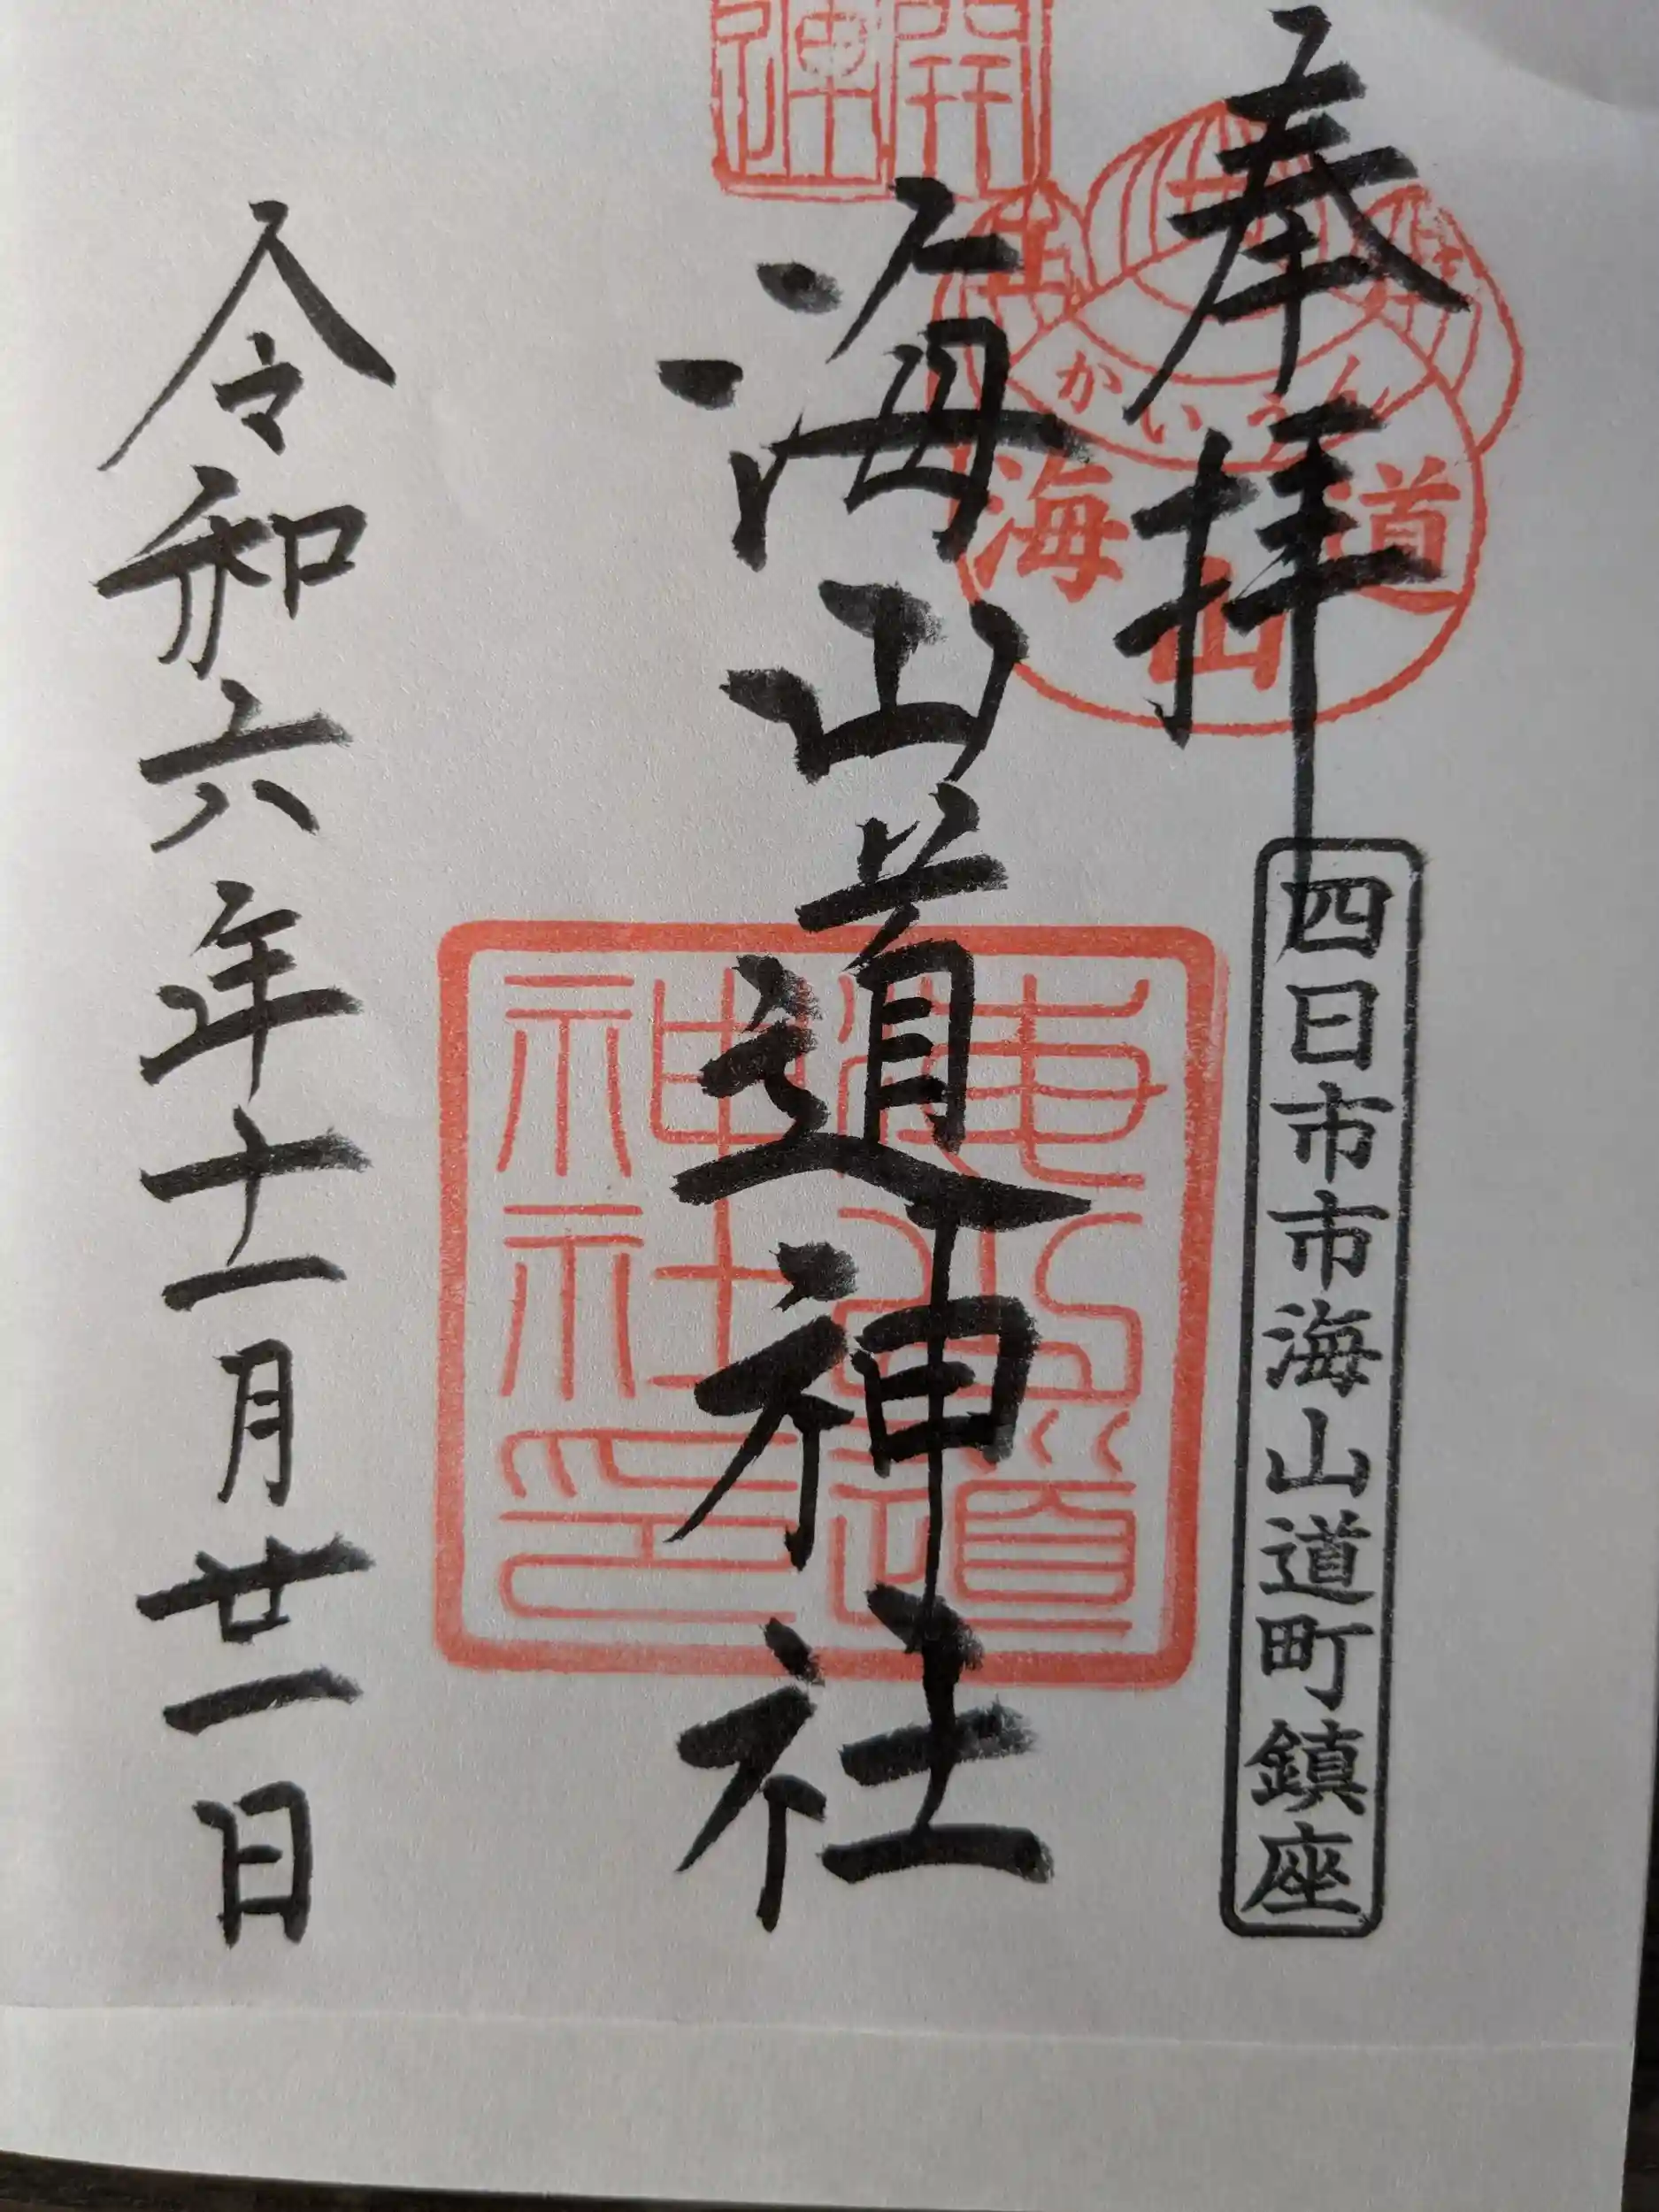 奉拝
四日市市海山道町鎮座
開運
かいうん
海山道
海山道神社
海山道神社印
令和六年十一月廿一日